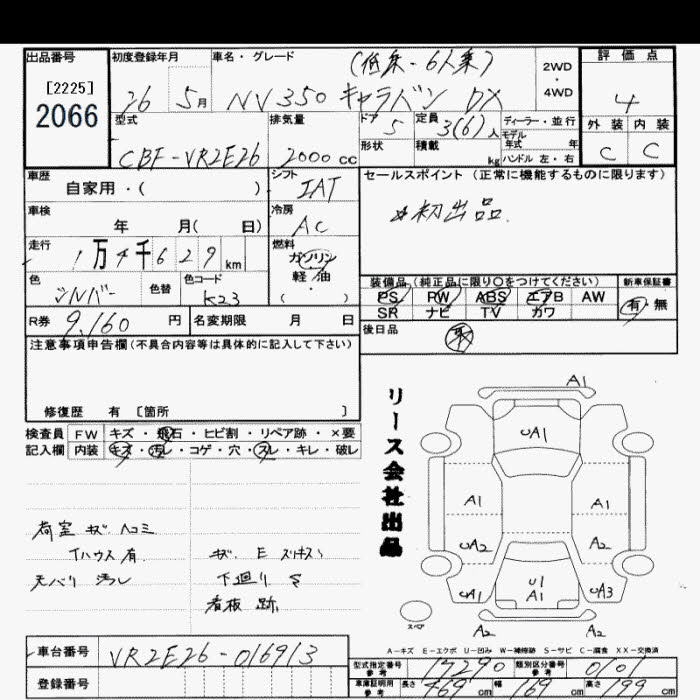 出品番号 初度登録年月 車名・グレード (低床-6人乗) 2WD ・ 4WD 評価点
[2225]
2066 26 5月 NV350 キャラバン DX 4
型式 排気量 ドア 5 定員 3(6)人 ディーラー・並行 外装 内装
モデル年式 年
CBF-VR2E26 2000cc 形状 積載 kg ハンドル 左・右 C C
車歴 シフト セールスポイント(正常に機能するものに限ります)
自家用・( ) IAT
車検 冷房 初出品.
年 月( 日) AC
走行 1万4千629km 燃料
ガソリン
色 色替 色コード 軽・油 装備品(純正品に限り○をつけてください) 新車保証書
シルバー K23 ( ・ ) PS PW ABS エアB AW 有・無
R券 9,160円 名変期限 月 日 SR ナビ TV カワ
後日品
注意事項申告欄(不具合内容等は具体的に記入して下さい)
修復歴 有 [箇所 ]
検査員 FW キズ・飛石・ヒビ割・リペア跡・×要
記入欄 内装 キズ・汚レ・コゲ・穴・スレ・キレ・破レ
リース会社出品
A1
UA1
A1 A1
UA2 A2
UA1 U1 A1 UA3
A2 A2
スペア
荷室 キズ ヘコミ
Tハウス有 キズ E スリキズ
天バリ 汚レ 下廻り S
看板 跡
A-キズ E-エクボ U-凹み W-補修跡 S-サビ C-腐食 XX-交換済
車台番号 VR2E26-016913
型式指定番号 参考 17290 類別区分番号 参考 0101
登録番号 車庫証明用 参考 長さ 469cm 幅 169cm 高さ 199cm